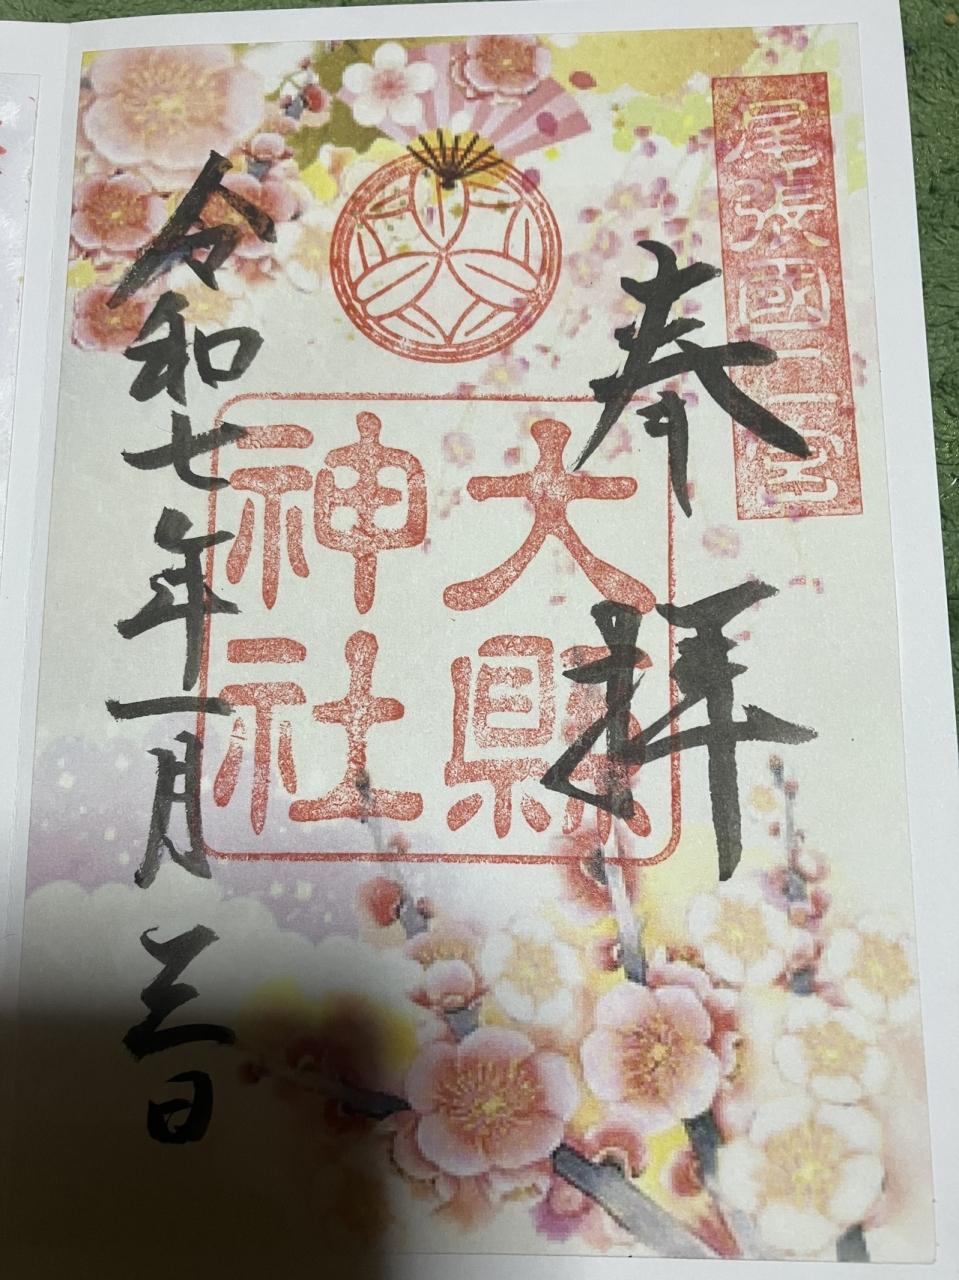 尾張國二宮
奉拝
大縣
神社
令和七年一月三日